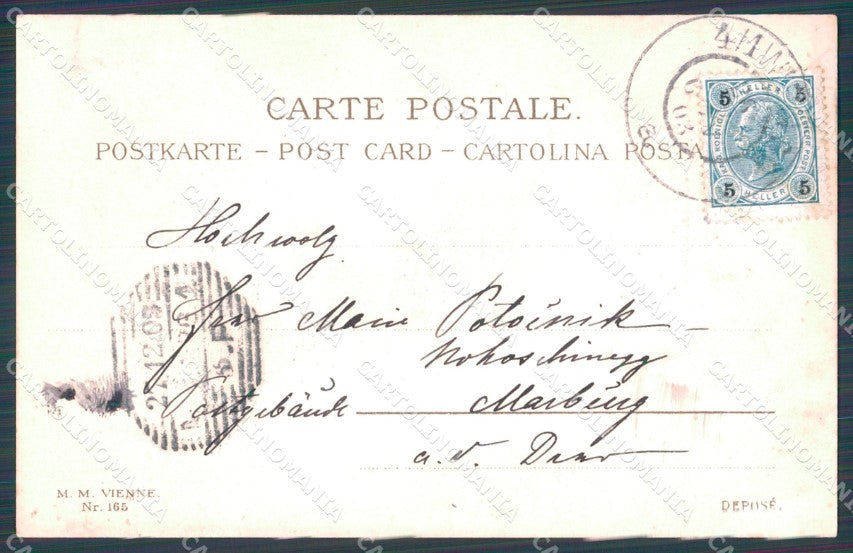 CARTE POSTALE.
POSTKARTE – POST CARD – CARTOLINA POSTA
5 HELLER 5
5 HELLER 5
Hochwolg.
Potočnik –
Kokoschinegg
Postgebäude Marburg
a. d. Drau
27.12.03
M. M. VIENNE.
Nr. 165
DEPOSÉ.
CARTOLINOMANIA